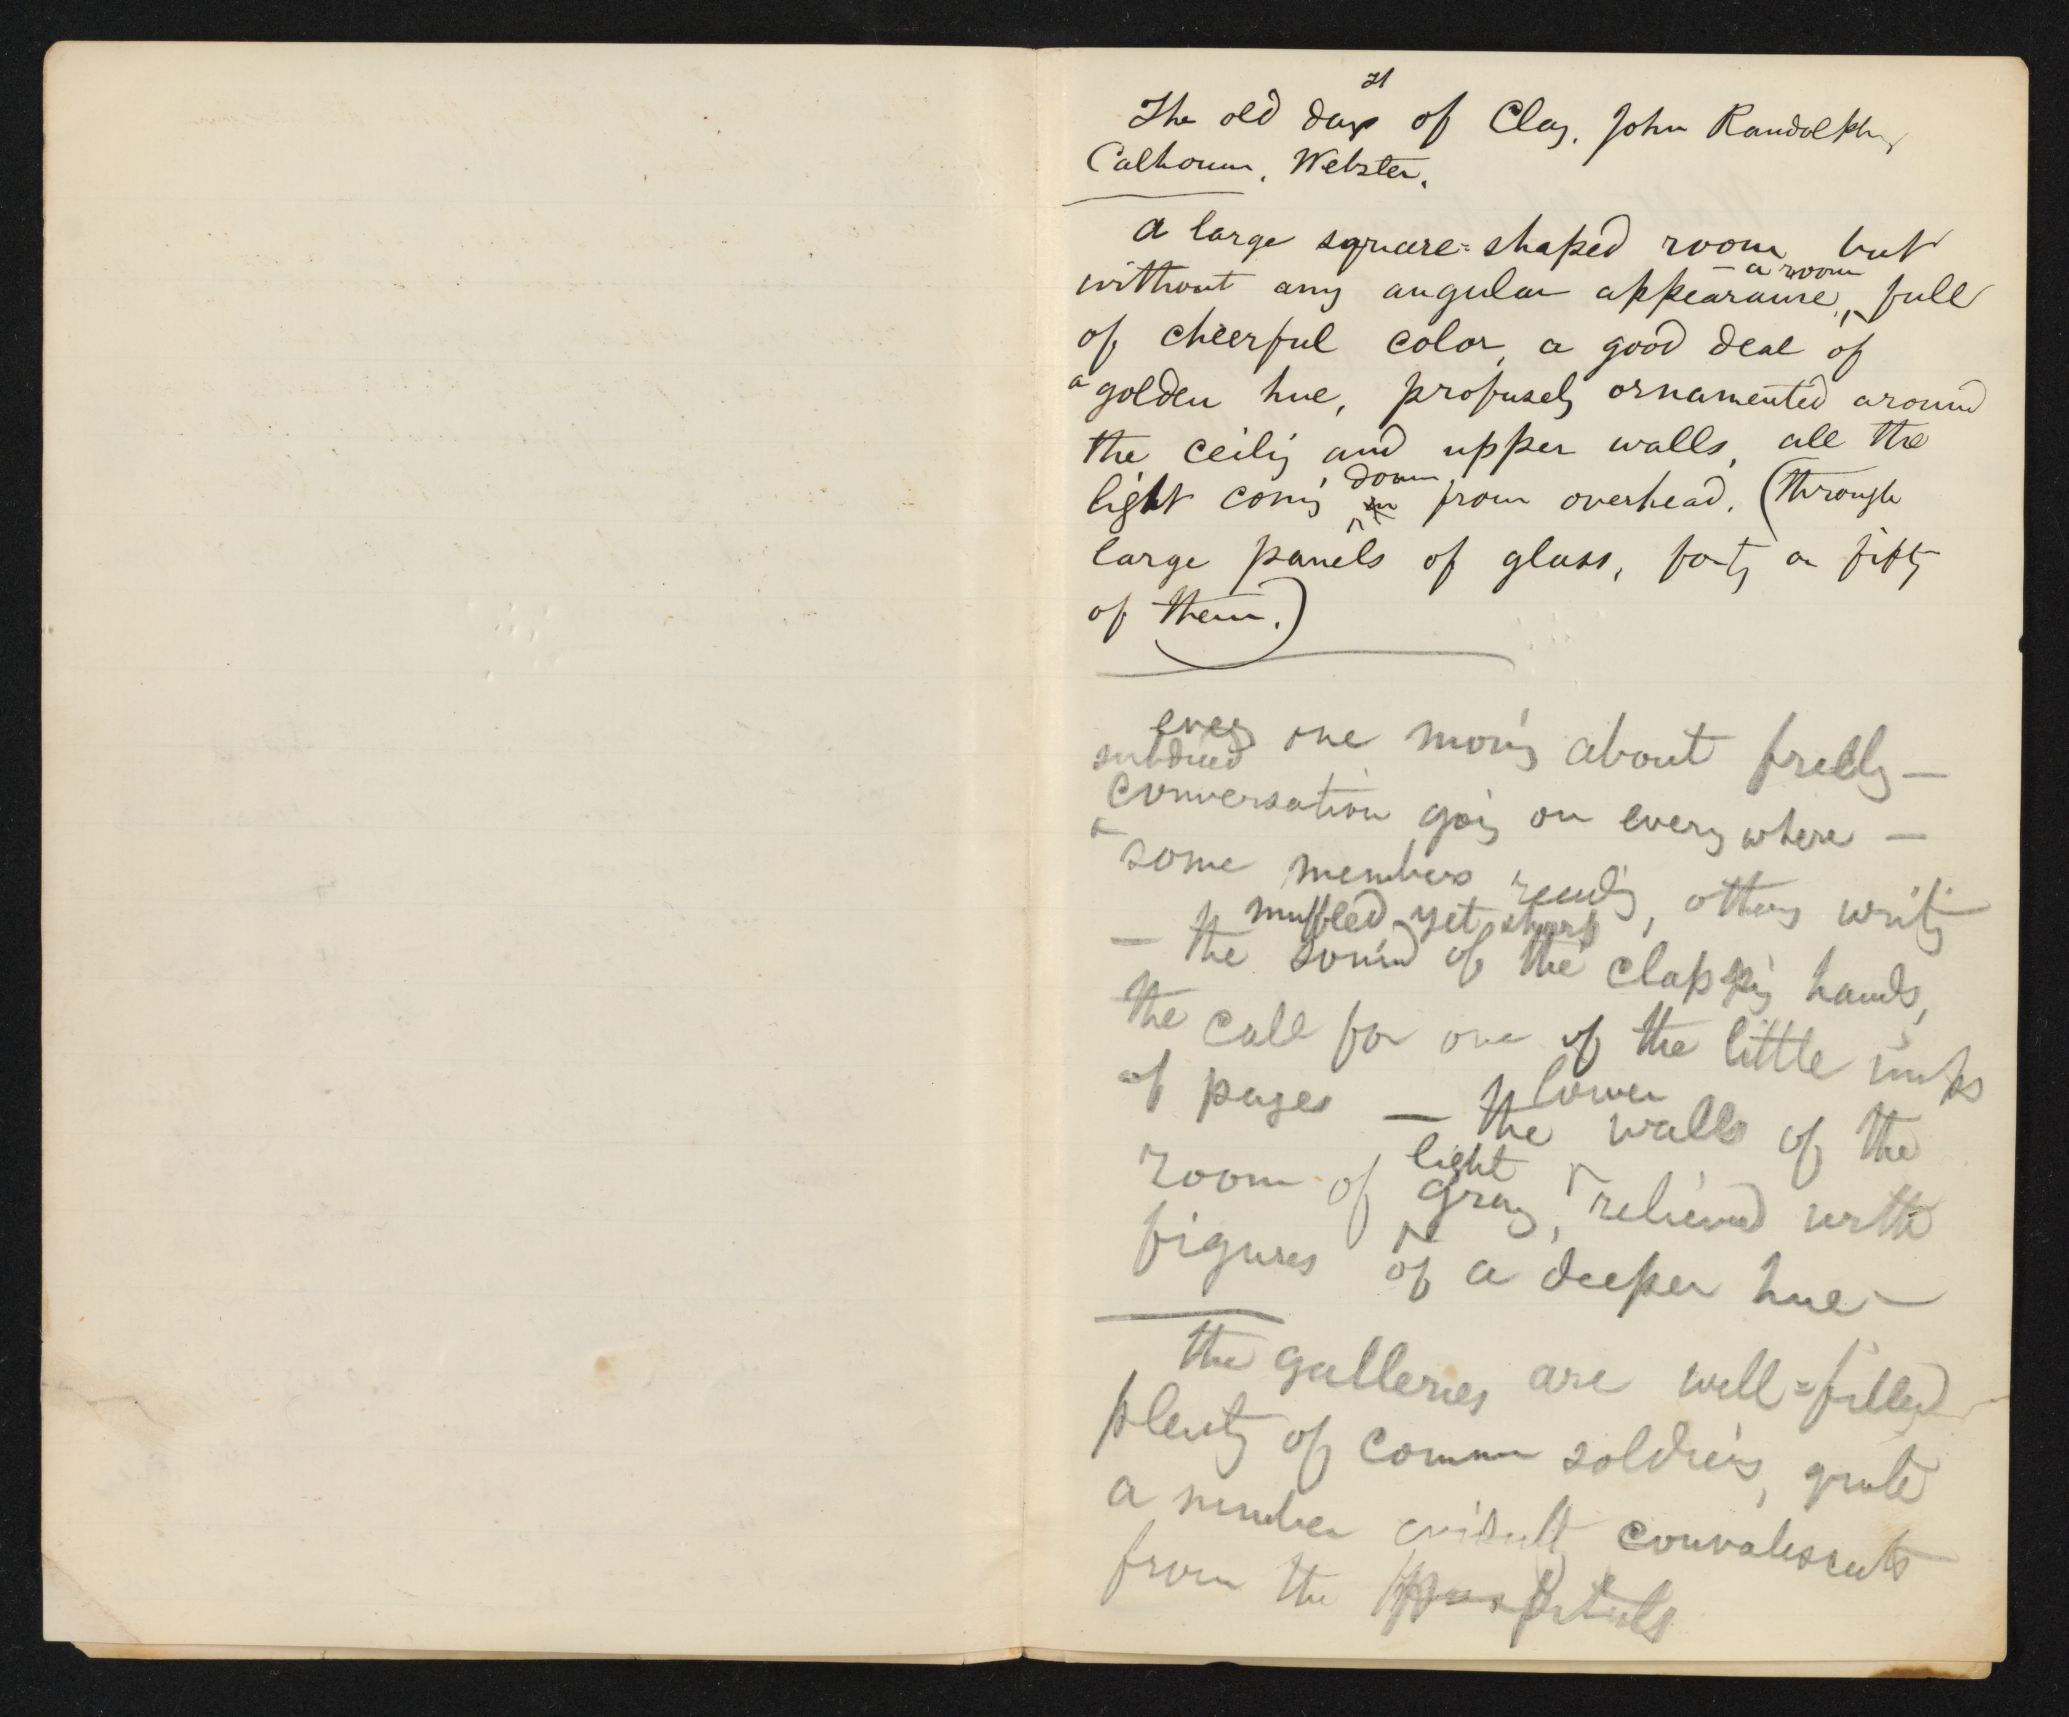 21
The old days of Clay, John Randolph,
Calhoun, Webster.
a large square=shaped room but
— a room
without any angular appearance, full
of cheerful color, a good deal of
a golden hue, profusely ornamented around
the ceilig and upper walls, all the
down
light comig in from overhead. (through
large panels of glass, forty or fifty
of them.)
every one movig about freely —
subdued
conversation goig on every where —
some members readig, others writig
muffled yet sharp
— the sound of the clappig hands,
the call for one of the little imps
of pages — the walls of the
lower
light
room of gray, relieved with
figures of a deeper hue —
the galleries are well=filled
plenty of common soldiers, quite
a number evident convalescents
from the hospitals